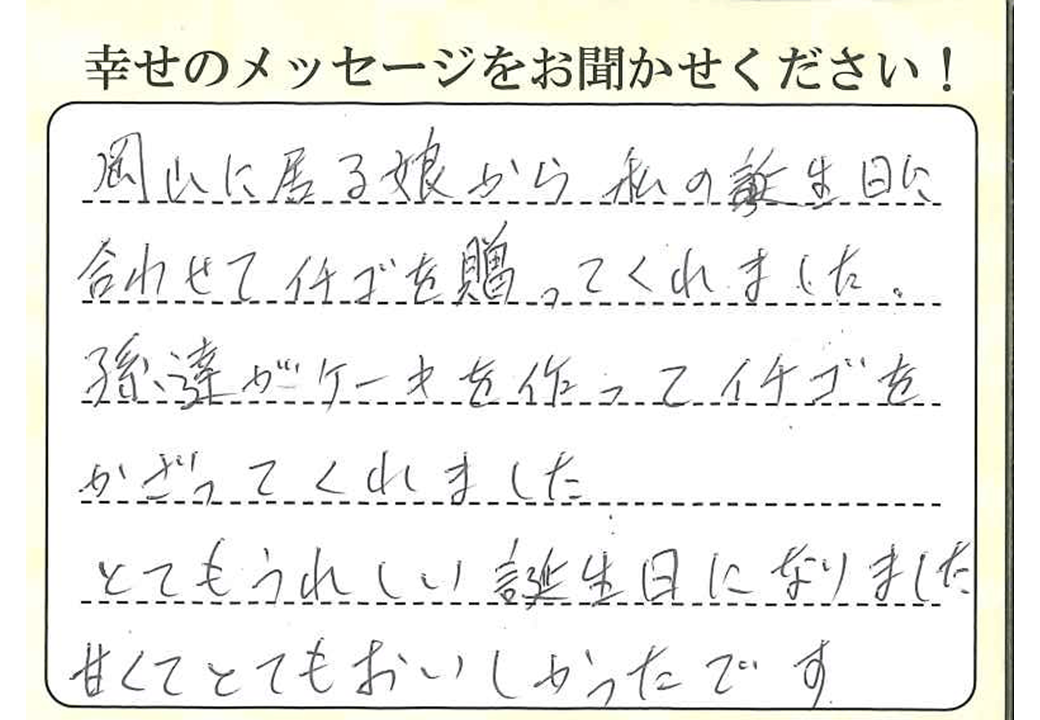 幸せのメッセージをお聞かせください！
岡山に居る娘から私の誕生日に
合わせてイチゴを贈ってくれました。
孫達がケーキを作ってイチゴを
かざってくれました
とてもうれしい誕生日になりました
甘くてとてもおいしかったです